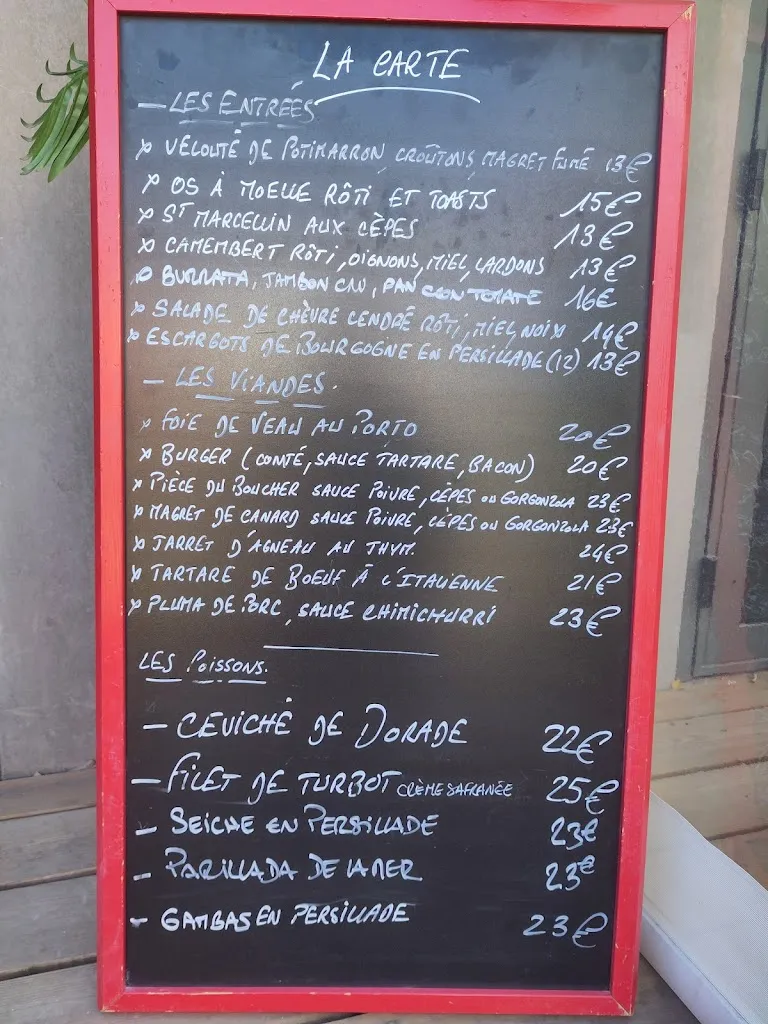 LA CARTE
— LES ENTRÉES
× VELOUTÉ DE POTIMARRON, CROÛTONS, MAGRET FUMÉ 13€
× OS À MOELLE RÔTI ET TOASTS 15€
× ST MARCELLIN AUX CÈPES 13€
× CAMEMBERT RÔTI, OIGNONS, MIEL, LARDONS 13€
× BURRATA, JAMBON CRU, PAN CON TOMATE 16€
× SALADE DE CHÈVRE CENDRÉ RÔTI, MIEL, NOIX 14€
× ESCARGOTS DE BOURGOGNE EN PERSILLADE (12) 13€
— LES VIANDES.
× FOIE DE VEAU AU PORTO 20€
× BURGER (COMTÉ, SAUCE TARTARE, BACON) 20€
× PIÈCE DU BOUCHER SAUCE POIVRE, CÈPES OU GORGONZOLA 23€
× MAGRET DE CANARD SAUCE POIVRE, CÈPES OU GORGONZOLA 23€
× JARRET D'AGNEAU AU THYM. 24€
× TARTARE DE BOEUF À L'ITALIENNE 21€
× PLUMA DE PORC, SAUCE CHIMICHURRI 23€
LES POISSONS.
— CEVICHÉ DE DORADE 22€
— FILET DE TURBOT CRÈME SAFRANÉE 25€
— SEICHE EN PERSILLADE 23€
— PARILLADA DE LA MER 23€
— GAMBAS EN PERSILLADE 23€